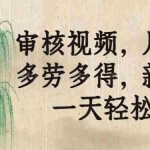 审核视频，
多劳多得，
一天轻松